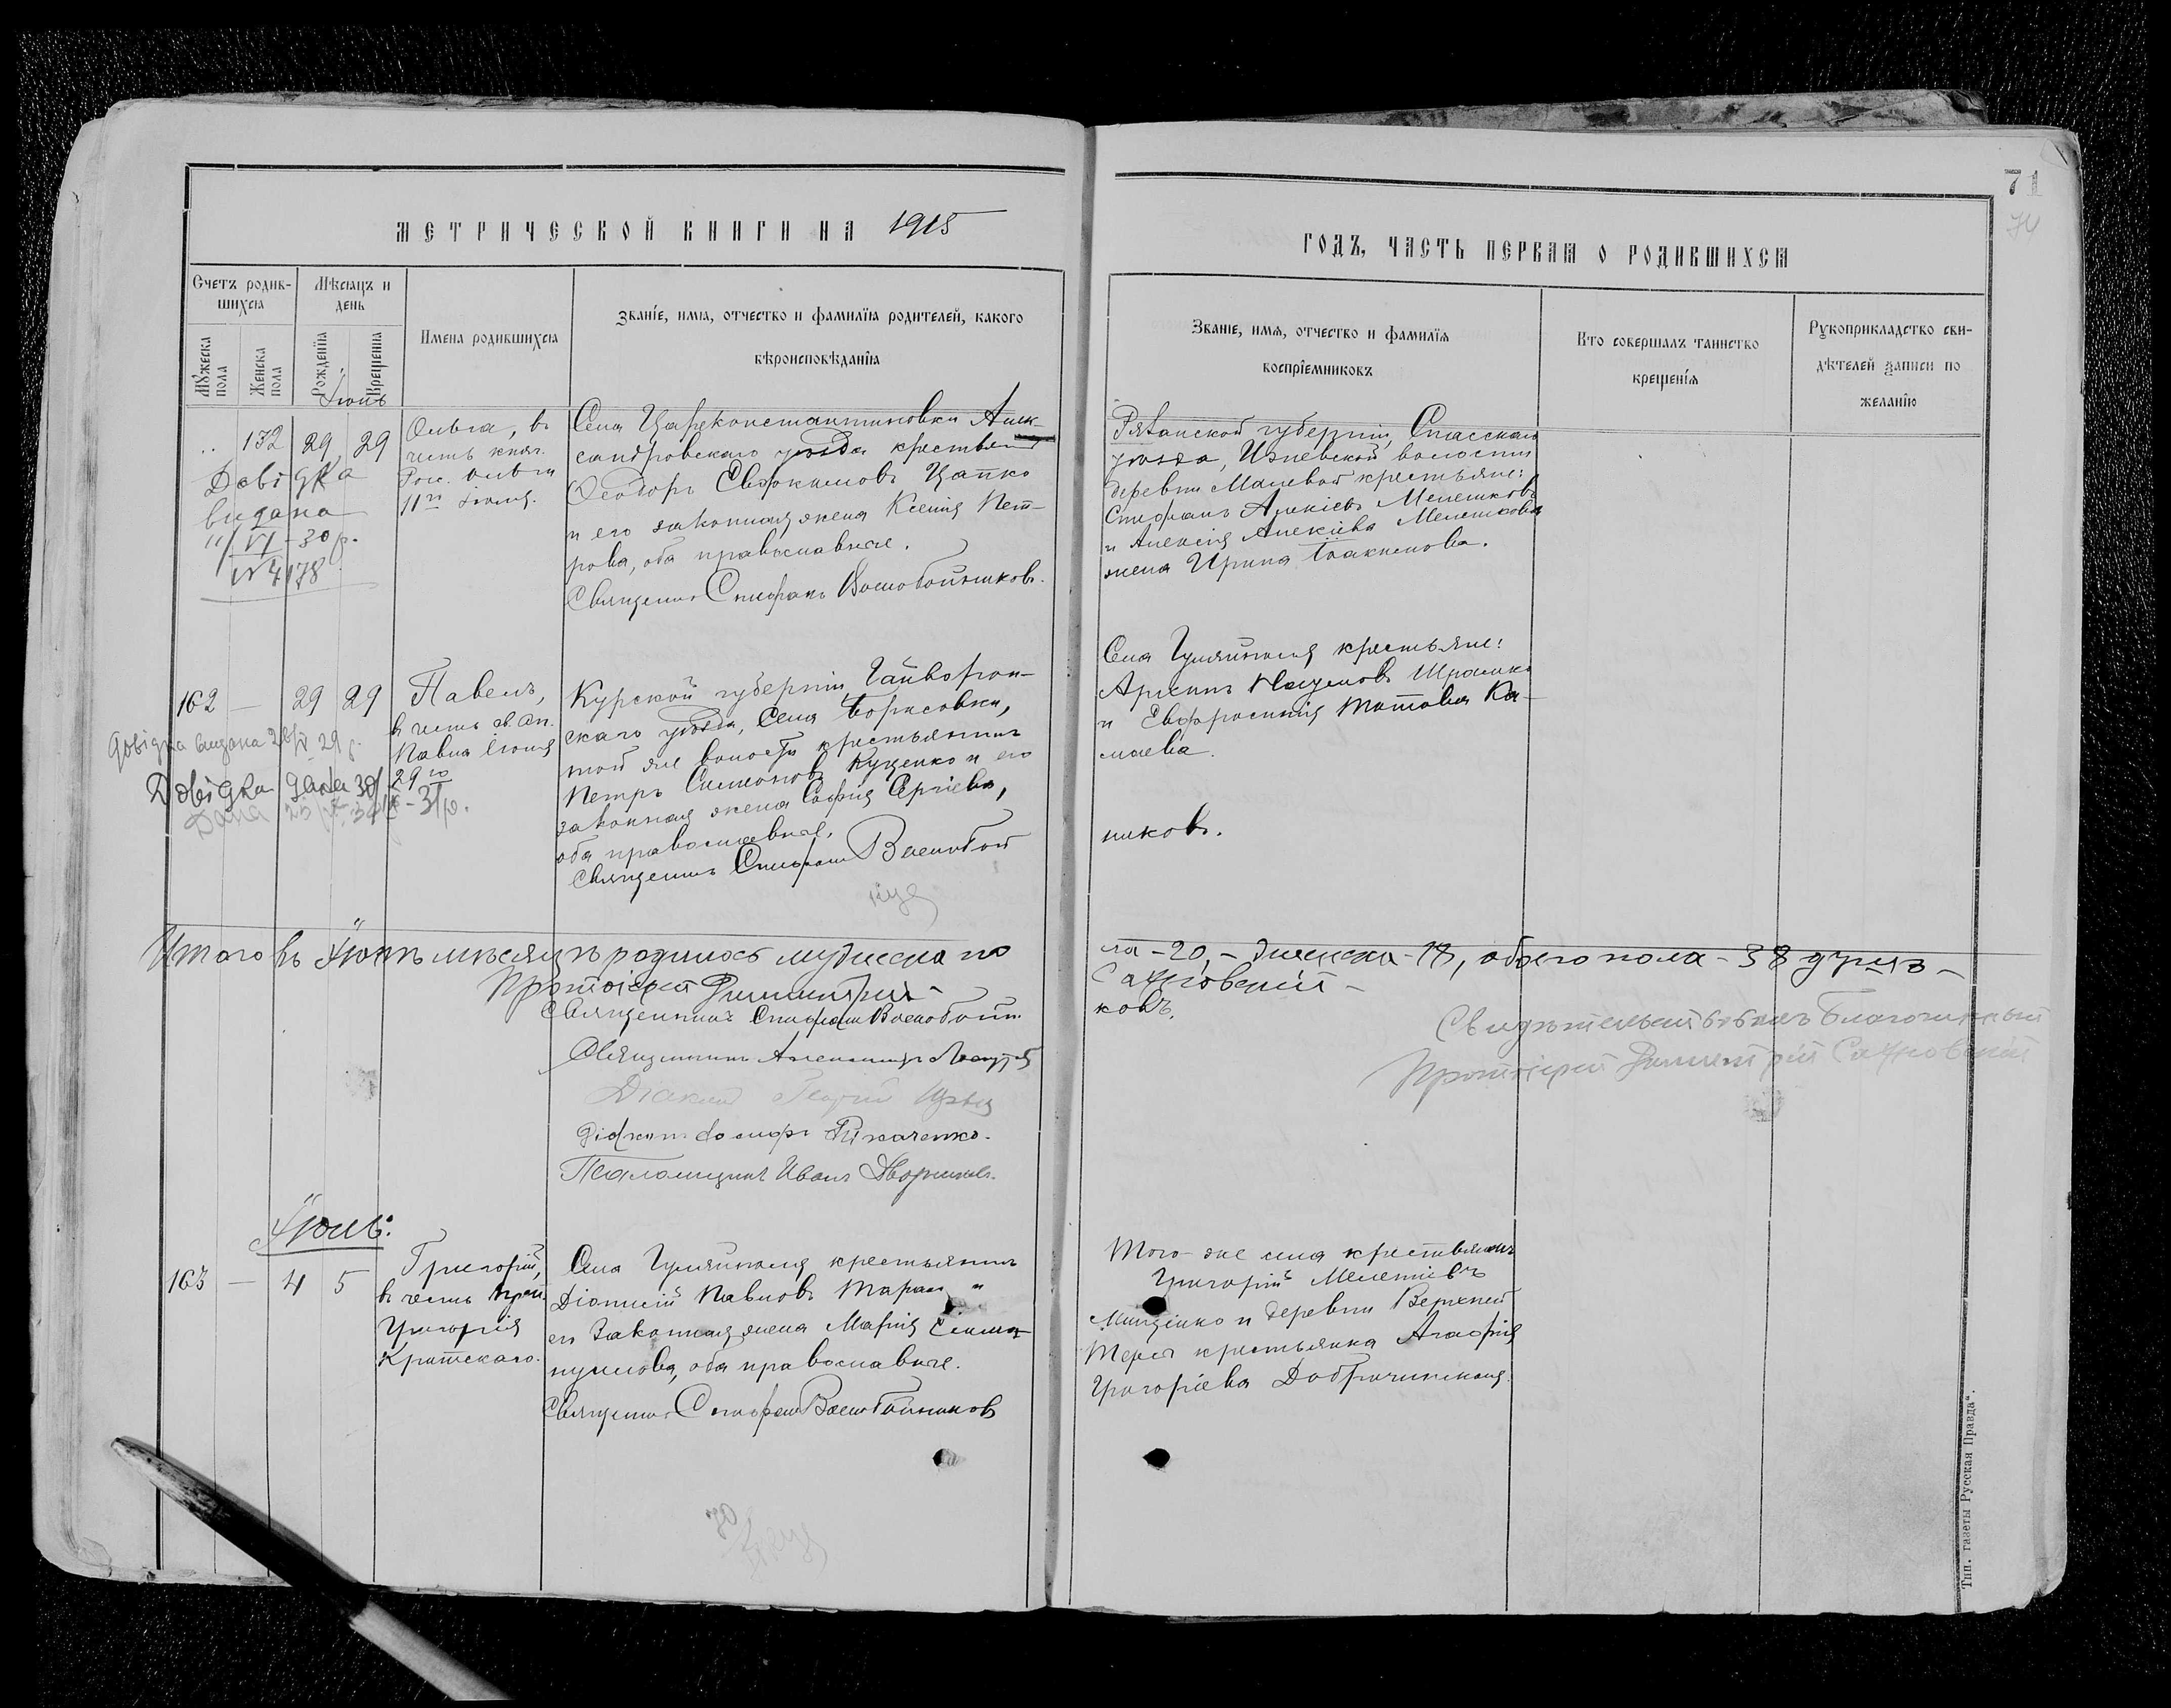 71
74
МЕТРИЧЕСКОЙ КНИГИ НА 1915
ГОДЪ, ЧАСТЬ ПЕРВАЯ О РОДИВШИХСЯ
Счетъ родив-
шихся
Мѣсяцъ и
день
Мужеска
пола
Женска
пола
Рожденія
Крещенія
Имена родившихся
Званіе, имя, отчество и фамилія родителей, какого
вѣроисповѣданія
Званіе, имя, отчество и фамилія
воспріемниковъ
Кто совершалъ таинство
крещенія
Рукоприкладство сви-
дѣтелей записи по
желанію
Іюнь
132 29 29
Ольга, въ
честь княг.
Рос. Ольги
11го іюля.
Довідка
видана
VI - 30 р.
№ 4178
Села Цареконстантиновки Алек-
сандровскаго уѣзда крестьянинъ
Ѳеодоръ Евдокимовъ Цапко
и его законная жена Ксенія Пет-
рова, оба православные.
Священникъ Стефанъ Воскобойниковъ.
Рязанской губерніи, Спасскаго
уѣзда, Ижевской волости
деревни Малевой крестьяне:
Стефанъ Алексіевъ Мелешковъ
и Алексія Алексіева Мелешкова
жена Ирина Іоакимова.
162 — 29 29
Павелъ,
въ честь св. ап.
Павла іюня
29го
Довідка видана 29 р.
Довідка дана 30/IX - 31 р.
Дана
Курской губерніи, Грайворон-
скаго уѣзда, села Борисовки,
той же волости крестьянинъ
Петръ Симоновъ Куценко и его
законная жена Софія Сергіева,
оба православные.
Священникъ Стефанъ Воскобой
никовъ.
Села Гуляйполя крестьяне:
Арсеній Наумовъ Шрамко
и Евфросинія Титова Ка-
маева.
Итого въ Іюнѣ мѣсяцѣ родилось мужеска по
ла - 20, - женска - 18, обоего пола - 38 душъ -
Протоіерей Димитрій
Сахновскій -
Священникъ Стефанъ Воскобойни
ковъ.
Священникъ Александръ
Діаконъ Георгій
Діаконъ Іосифъ Ткаченко.
Псаломщикъ Иванъ Дворниковъ.
Свидѣтельствовалъ Благочинный
Протоіерей Димитрій Сахновскій
Іюль:
163 — 4 5
Григорій,
въ честь преп.
Григорія
Критскаго.
Села Гуляйполя крестьянинъ
Діонисій Павловъ Таранъ и
его законная жена Марія
оба православные.
Священникъ Стефанъ Воскобойниковъ
Того же села крестьянинъ
Григорій Мелетіевъ
Мищенко и деревни Верхней
Терсы крестьянка Агафія
Григоріева Добрачинская.
70
Тип. газеты Русская Правда".